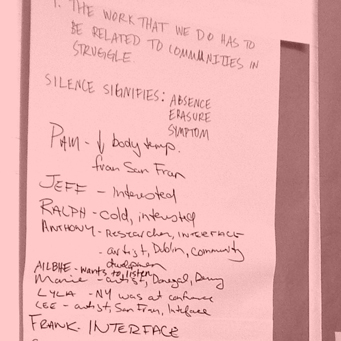 1. THE WORK THAT WE DO HAS TO
BE RELATED TO COMMUNITIES IN
STRUGGLE.
SILENCE SIGNIFIES: ABSENCE
ERASURE
SYMPTOM
PAM - ↓ body temp.
from San Fran
JEFF - Interested
RALPH - cold, interested
ANTHONY - Researcher, INTERFACE
- artist, Dublin, Community
development
AILBHE - wants to listen
Marie - artist, Donegal, Derry
LYLA - NY was at conference
LEE - artist, San Fran, Interface
FRANK - INTERFACE